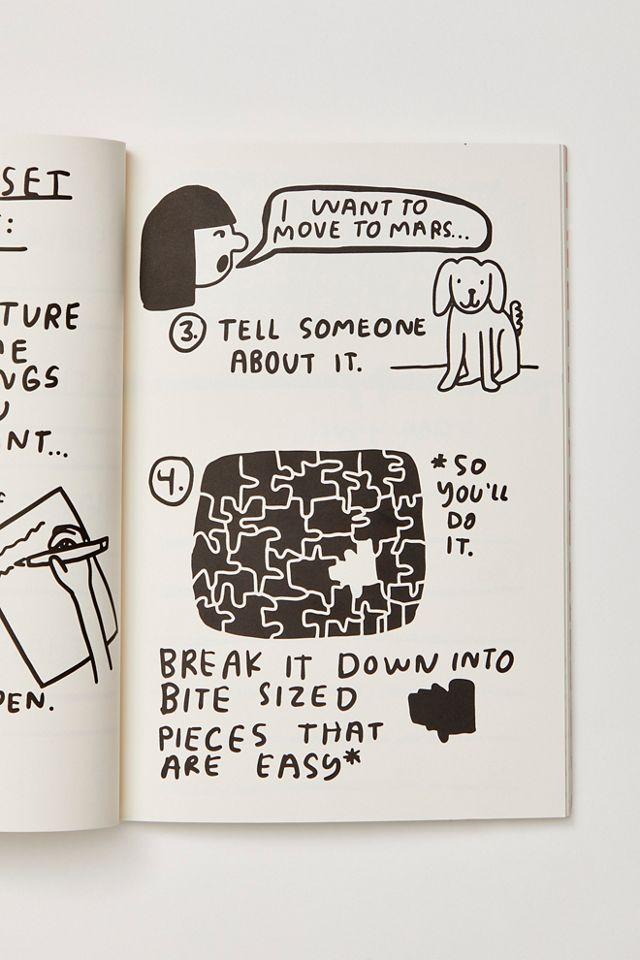 SET
:
TURE
NGS
NT...
PEN.
I WANT TO
MOVE TO MARS...
3. TELL SOMEONE
ABOUT IT.
4.
*SO
YOU'LL
DO
IT.
BREAK IT DOWN INTO
BITE SIZED
PIECES THAT
ARE EASY*